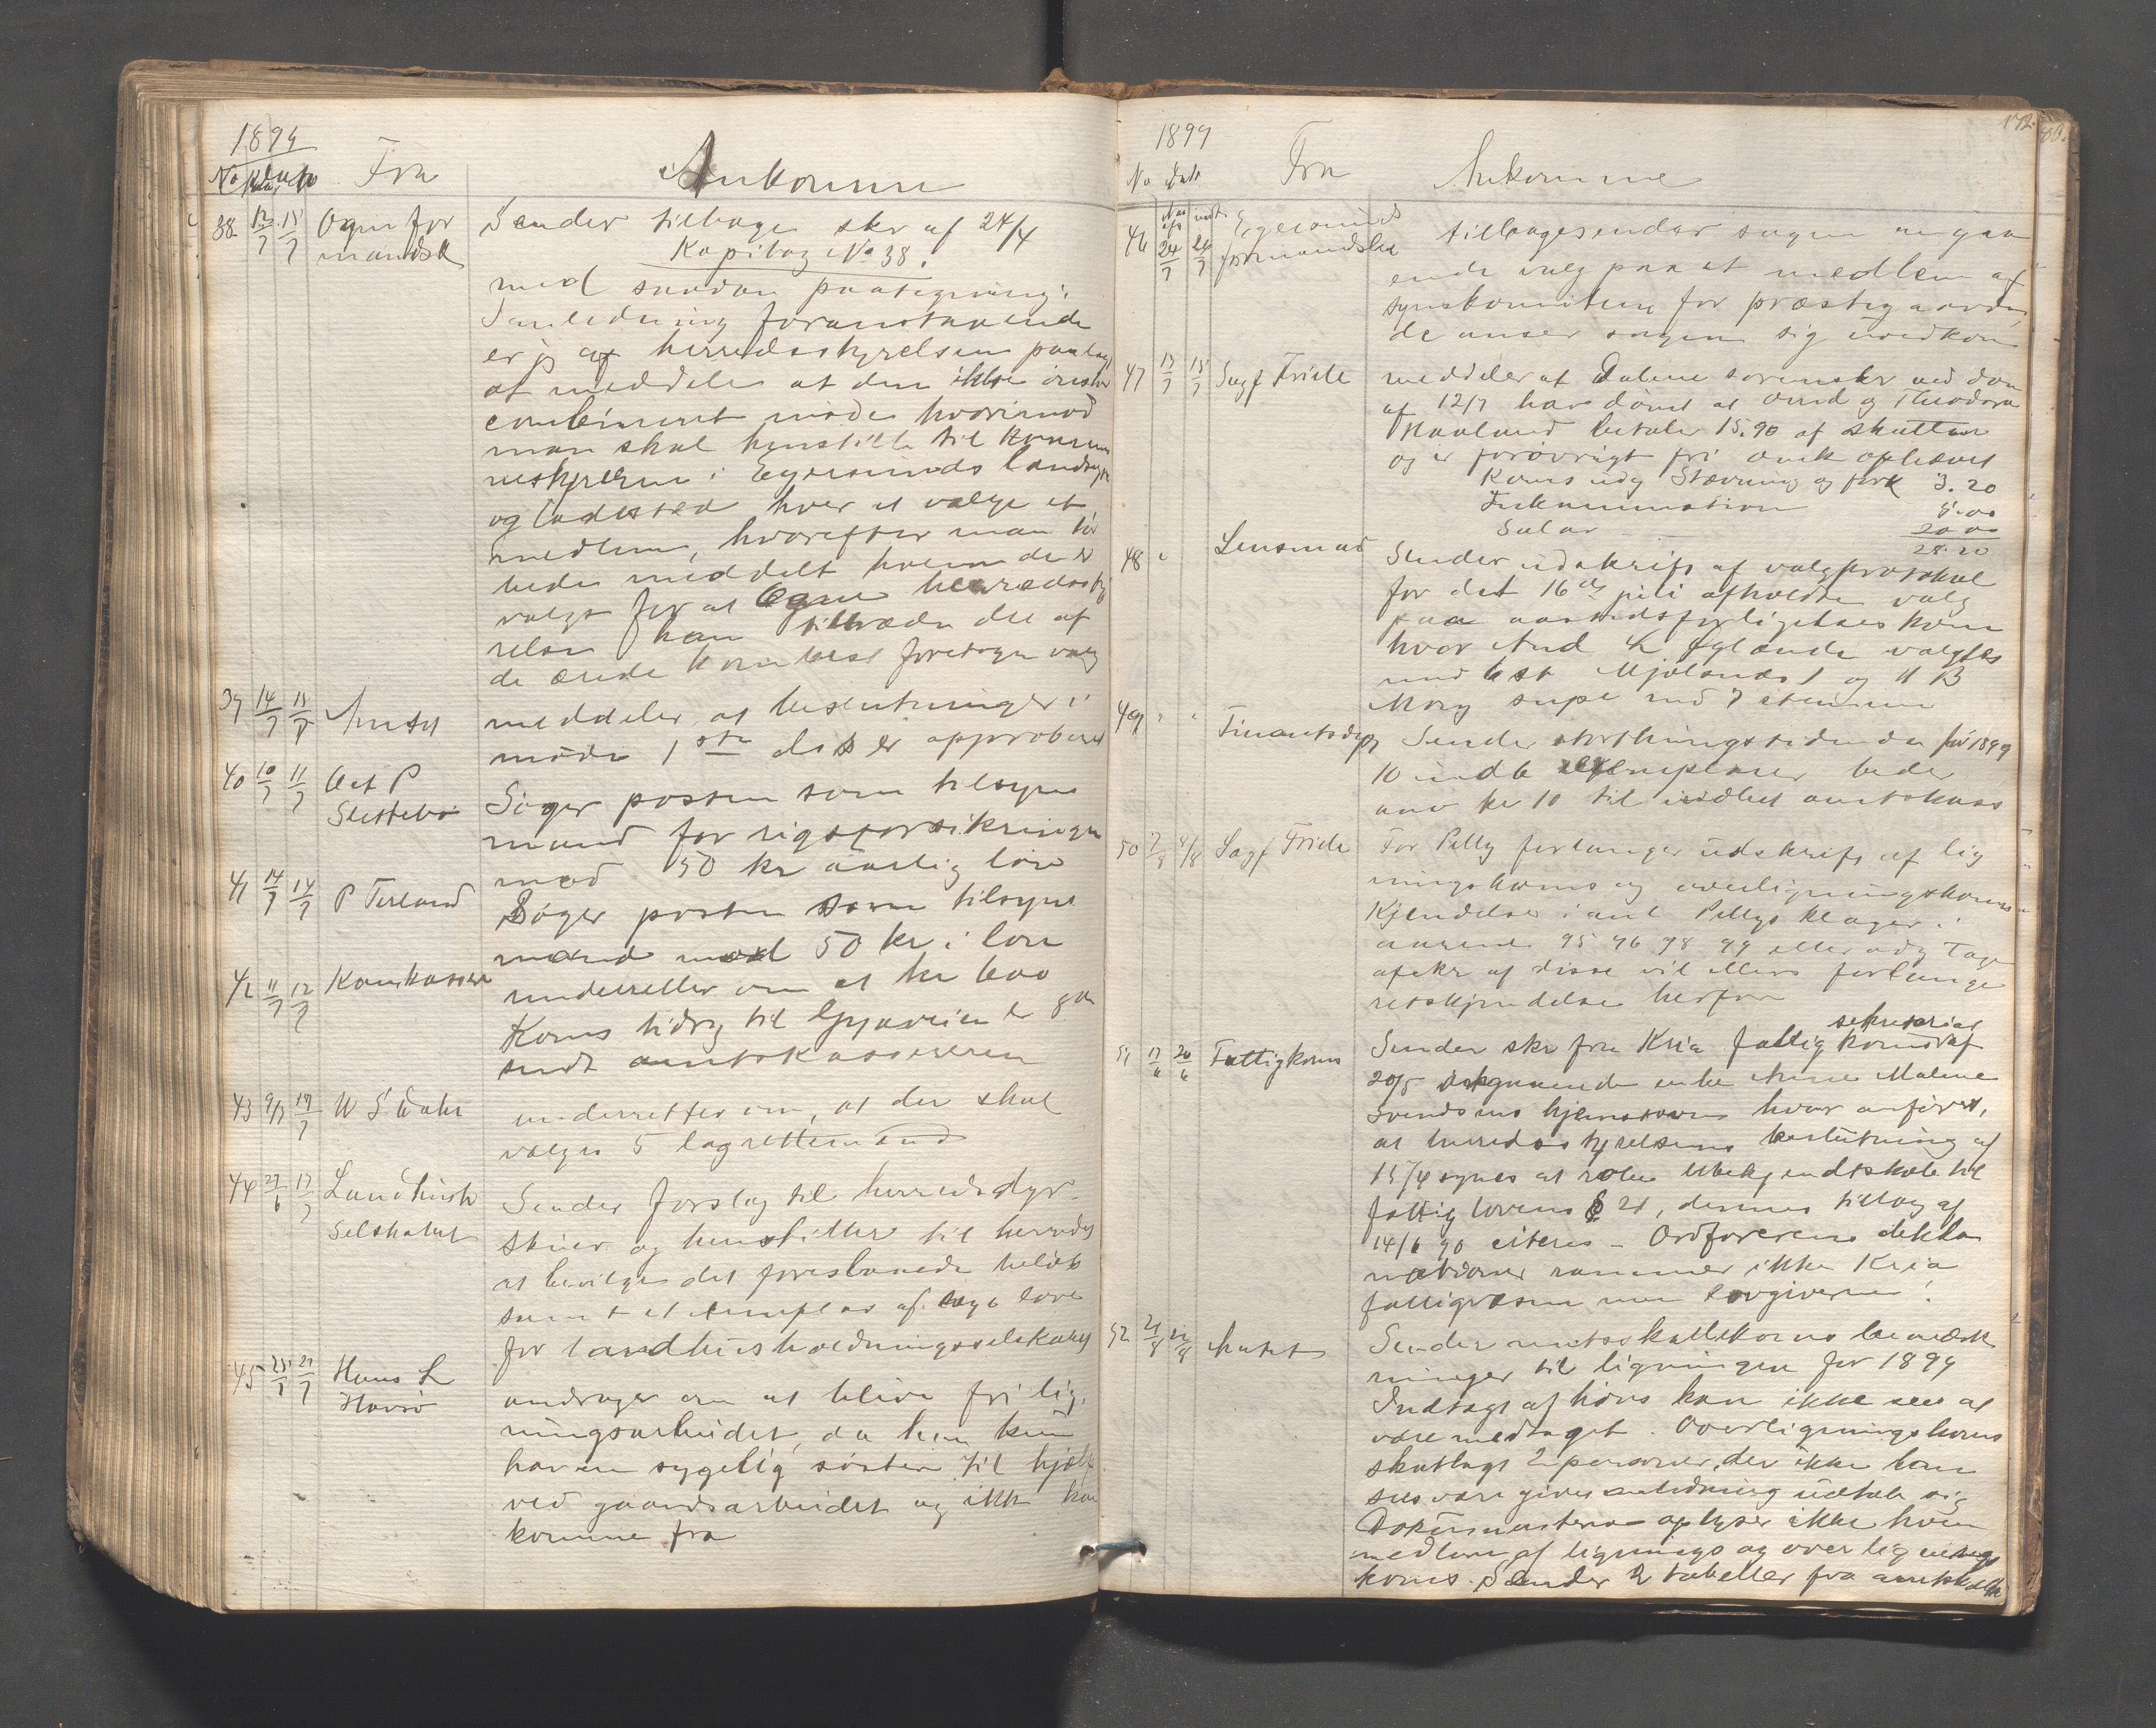 1899
No Dato Fra Ankomne
38 12/7 15/7 Ogne for Sender tilbage skr af 24/4
mandsk Kopibog No 38.
med saadan paategning:
I anledning foranstaaende
er jeg af herredsstyrelsen paalagt
at meddele at den ikke ønsker
combineret møde hvorimod
man skal henstille til kommu
nestyrerne i Egersunds landsogn
og ladested hver at vælge et
medlem, hvorefter man
bedes meddelt hvem der er
valgt for at Ogne herredssty
relse kan tiltræde det af
de ærede kommuner foretagne valg
39 14/7 15/7 Amtet meddeler, at beslutninger i
møde 1ste ds er approberet
40 10/7 11/7 Ost P Søger posten som tilsyns
Slettebø mand for rigsforsikringen
mod 50 kr aarlig løn
41 14/7 14/7 P Terland Søger posten som tilsyns
mand mod 50 kr i løn
42 11/7 12/7 Komkasser underretter om at kr 600
Koms bidrag til veien er
sendt amtskassereren
43 9/7 17/7 W S Dahl underretter om, at der skal
vælges 5 lagrettemænd
44 27/6 17/7 Landhush Sender forslag til herredsdyr
Selskabet skuer og henstiller til herredet
at bevilge det foreslaaede beløb
samt et exemplar af nye love
for landhusholdningsselskabet
45 21/7 Hans L andrager om at blive fri lig
Havsø ningsarbeidet, da han kun
har en sygelig søster til hjælp
ved gaardsarbeidet og ikke kan
komme fra
172
1899
No Dato Fra Ankomne
46 24/7 26/7 Egersunds tilbagesender sagen angaa
formandskab ende valg paa et medlem af
synskomiteen for præstegaarden,
de anser sagen sig uvedkom
47 13/7 15/7 Sagf Friele meddeler at Dalene sorenskr ved dom
af 12/7 har dømt at Arnd og Theodora
Haaland betaler 15.90 af skatten
og er forøvrigt fri
Koms udg Stævning og fork 3.20
Inkamination 5.00
Salær 20 00
28.20
48 " Lensmand Sender udskrift af valgprotokol
for det 16de juli afholdte valg
paa aastedsforligelses kom
hvor And L Øglænde valgtes
med 6 st Mjølands 1 og H B
Mong supl med 7 stemmer
49 " " Finantsdep Sender storthingstidende for 1899
10 indb exemplarer beder
anv kr 10 til indbet amtskass
50 7/8 8/8 Sagf Friele For Pelly forlanger udskrift af lig
ningskoms og overligningskoms
Kjendelse i anl Pellys klager i
aarene 95 96 98 99 eller
afskr af disse vil ellers forlange
retskjendelse herfor
51 17/6 20/6 Fattigkoms Sender skr fra Kria fattig koms sekretariat af
20/5 angaaende enke Anne Malene
Svendsens hjemstavn hvor anføres,
at herredsstyrelsens beslutning af
15/4 synes at røbe ubekjendtskab til
fattig lovens § 21, dennes tillæg af
14/6 90 citeres - Ordførerens dekla
mationer rammer ikke Kria
fattigvæsen men lovgiverne!
52 21/8 22/8 Amtet Sender amtsskattekoms bemærk
ninger til ligningen for 1899
Indtægt af høns kan ikke sees at
være medtaget. Overligningskoms
skatlagt 2 personer, der ikke kan
sees være givet anledning udtale sig
Dokumenterne oplyser ikke hvem
medlem af lignings og over lignings
koms. Sender 2 tabeller fra amtsskatte